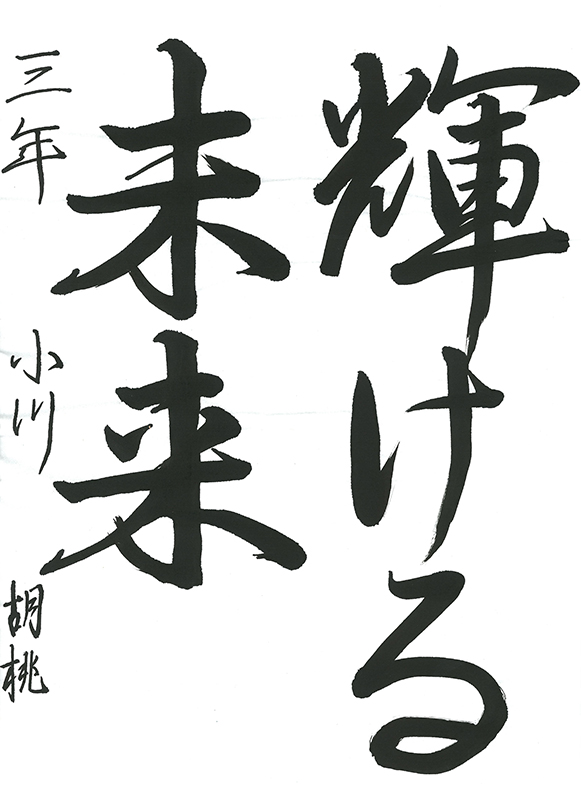 輝ける
未来
三年 小川 胡桃